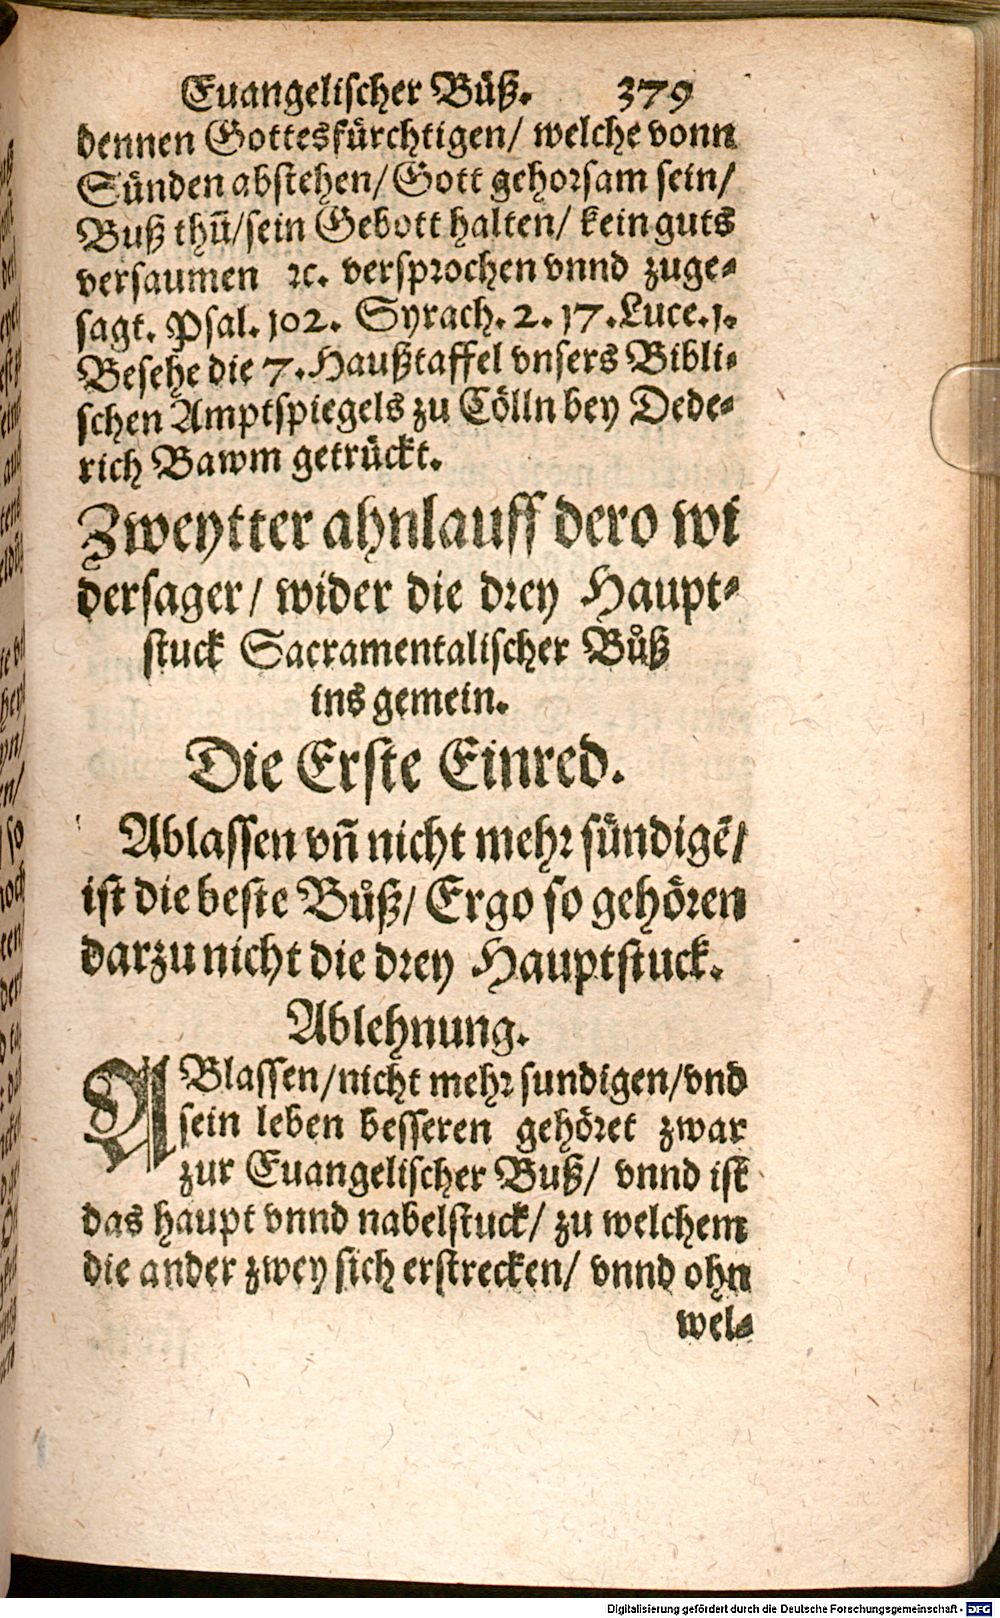 Euangelischer Bůß. 379
dennen Gottesfürchtigen/ welche vonn
Sünden abstehen/ Gott gehorsam sein/
Buß thůn̄/ sein Gebott halten/ kein guts
versaumen ꝛc. versprochen vnnd zuge⸗
sagt. Psal. 102. Syrach. 2. 17. Luce. 1.
Besehe die 7. Haußtaffel vnsers Bibli⸗
schen Amptspiegels zu Cölln bey Dede⸗
rich Bawm getrückt.
Zweytter ahnlauff dero wi
dersager/ wider die drey Haupt⸗
stuck Sacramentalischer Bůß
ins gemein.
Die Erste Einred.
Ablassen vn̄ nicht mehr sündigē/
ist die beste Bůß/ Ergo so gehören
darzu nicht die drey Hauptstuck.
Ablehnung.
ABlassen/ nicht mehr sundigen/ vnd
sein leben besseren gehöret zwar
zur Euangelischer Buß/ vnnd ist
das haupt vnnd nabelstuck/ zu welchem
die ander zwey sich erstrecken/ vnnd ohn
wel⸗
Digitalisierung gefördert durch die Deutsche Forschungsgemeinschaft - DFG